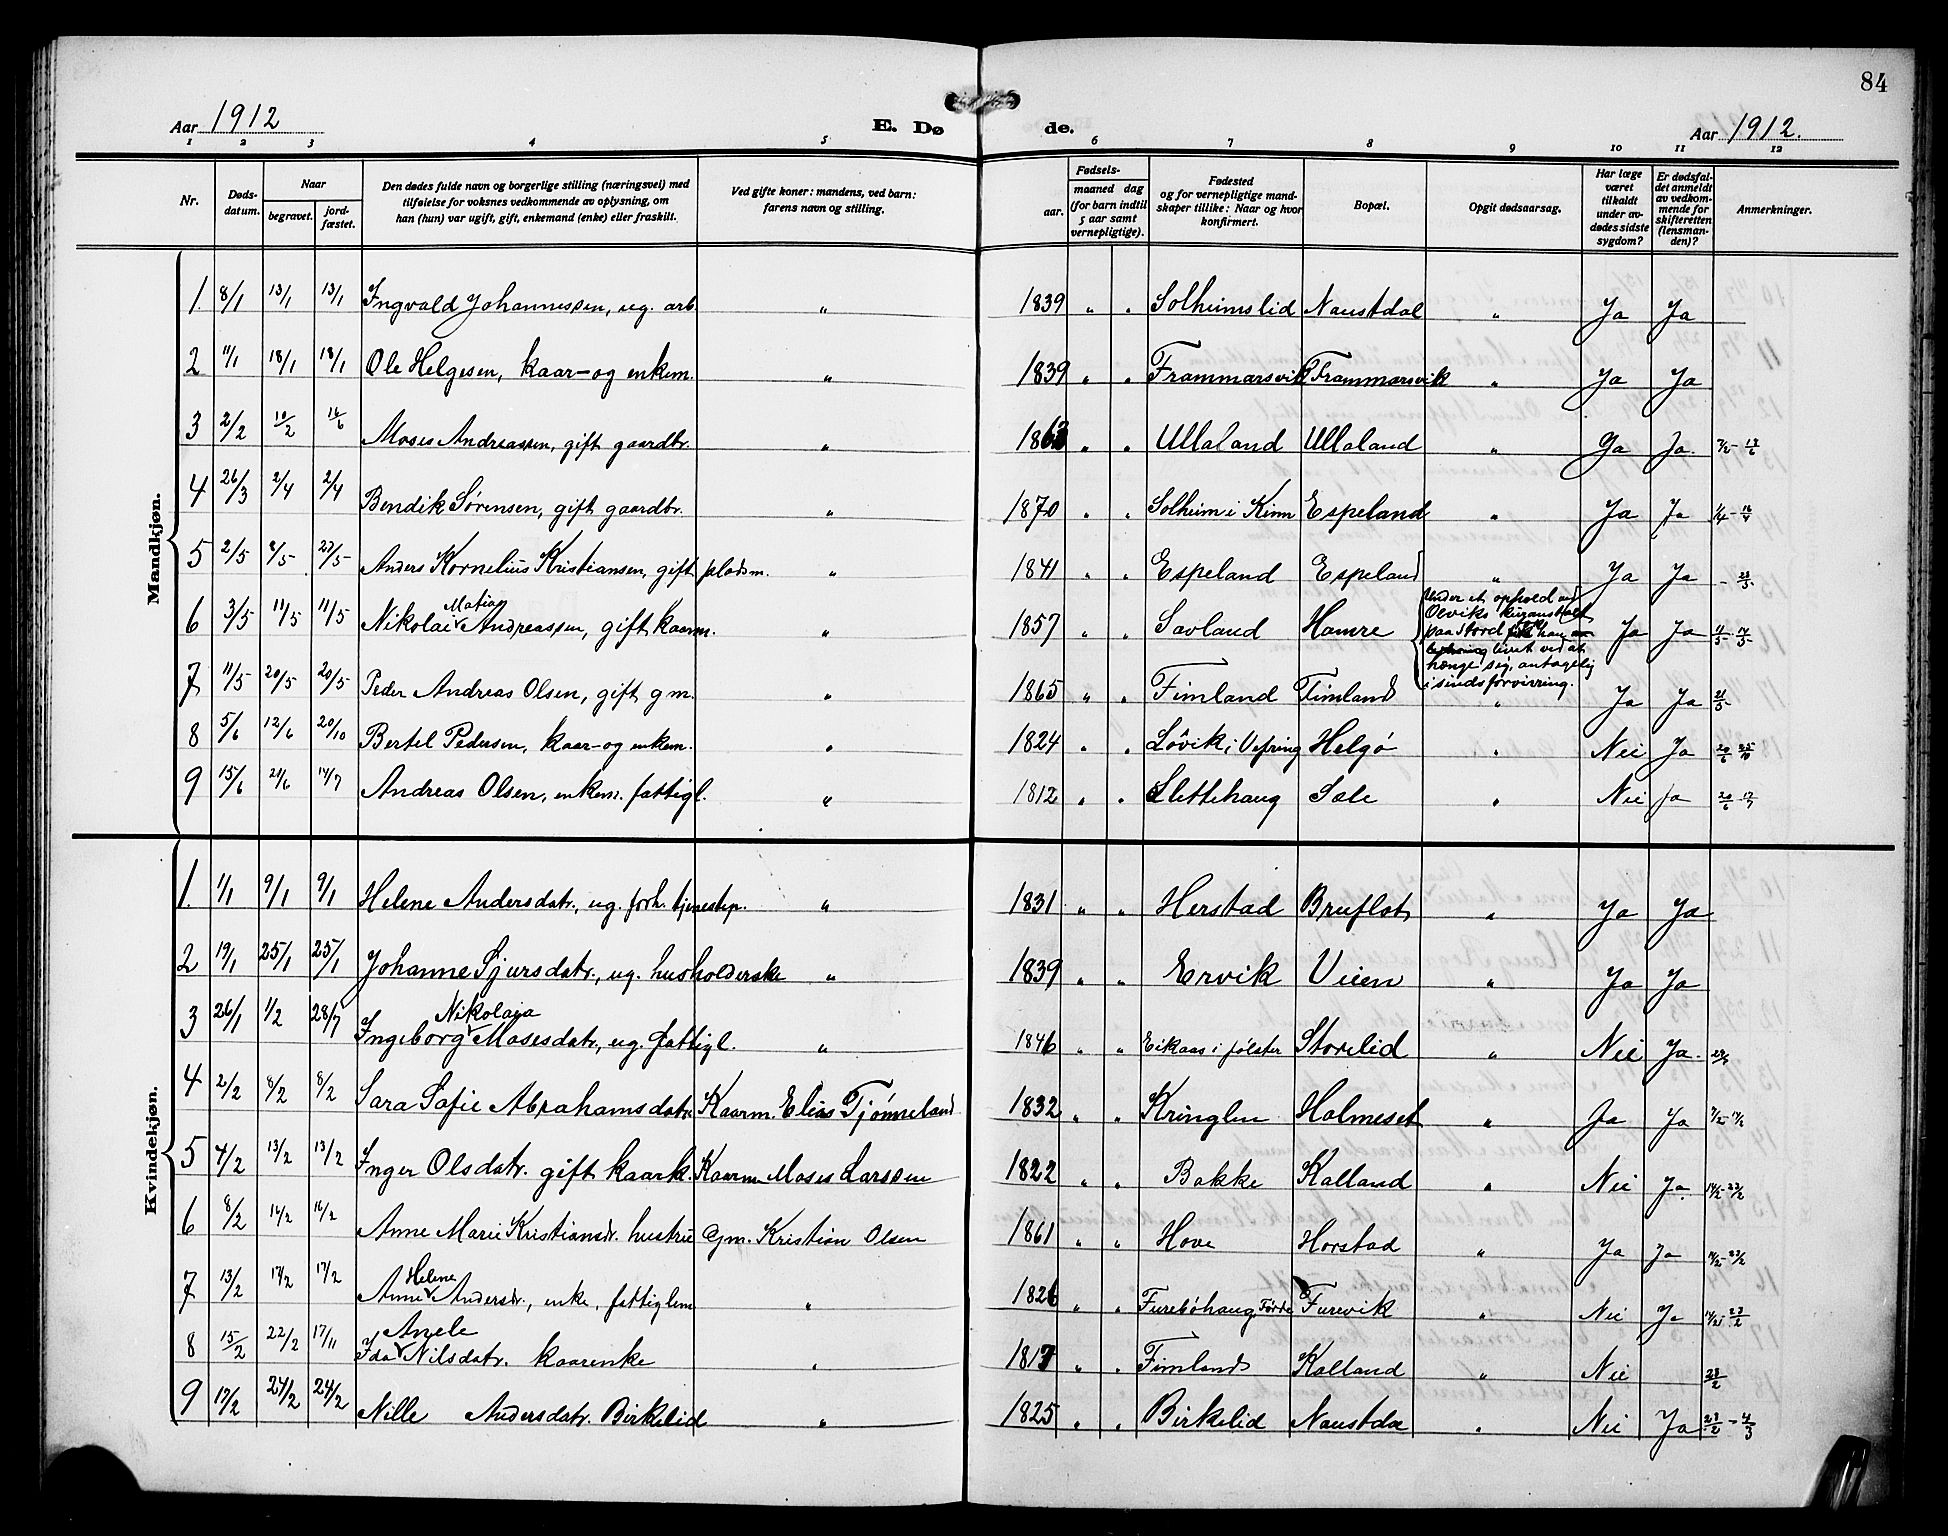 84
Aar 1912
E. Dø
de.
Aar 1912.
1 2 3 4 5 6 7 8 9 10 11 12
Nr.
Døds-
datum.
Naar
begravet.
jord-
fæstet.
Den dødes fulde navn og borgerlige stilling (næringsvei) med
tilføielse for voksnes vedkommende av oplysning, om
han (hun) var ugift, gift, enkemand (enke) eller fraskilt.
Ved gifte koner: mandens, ved barn:
farens navn og stilling.
Fødsels-
aar.
maaned dag
(for barn indtil
5 aar samt
vernepligtige).
Fødested
og for vernepligtige mand-
skaper tillike: Naar og hvor
konfirmert.
Bopæl.
Opgit dødsaarsag.
Har læge
været
tilkaldt
under av-
dødes sidste
sygdom?
Er dødsfal-
det anmeldt
av vedkom-
mende for
skifteretten
(lensman-
den)?
Anmerkninger.
Mandkjøn.
1. 8/1 13/1 13/1 Ingvald Johannessen, ug. arb. " 1839 " " Solheimslid Naustdal " Ja Ja
2 11/1 18/1 18/1 Ole Helgesen, kaar- og enkem. " 1839 " " Frammarsvik Frammarsvik " Ja Ja
3 2/2 10/2 16/6 Moses Andreassen, gift gaardbr. " 1863 " " Ullaland Ullaland " Ja Ja.
4 26/3 2/4 2/4 Bendik Sørensen, gift gaardbr. " 1870 " " Solheim i Kinn Espeland " Ja Ja
5 2/5 8/5 23/5 Anders Kornelius Kristiansen, gift pladsm. " 1841 " " Espeland Espeland " Ja Ja - 23/5
6 3/5 11/5 11/5 Nikolai Matias Andreassen, gift kaarm. " 1857 " " Savland Hamre Ja Ja 11/5 - 14/5
Under et ophold ved
Olviks kuranstalt
paa Stord han
livet ved at
hænge sig, antagelig
i sindsforvirring.
7 11/5 20/5 20/5 Peder Andreas Olsen, gift gm. " 1865 " " Fimland Fimland " Ja Ja 21/5
8 5/6 12/6 20/10 Bertel Pedersen, kaar- og enkem. " 1824 " " Løvik i Vefring Helgø " Nei Ja 20/6 25/10
9 15/6 21/6 14/7 Andreas Olsen, enkem. fattigl. " 1812 " " Slettehaug Sæle " Nei Ja 20/6 17/7
Kvindekjøn.
1. 1/1 9/1 9/1 Helene Andersdatr., ug. forh. tjenestep. " 1831 " " Herstad Bruflot " Ja Ja
2 19/1 25/1 25/1 Johanne Sjursdatr., ug. husholderske " 1839 " " Ervik Vieen " Ja Ja
3 26/1 1/2 28/7 Ingeborg Nikolaia Mosesdatr., ug. fattigl. " 1846 " " Eikaas i Jølster Storelid " Nei Ja.
4 2/2 8/2 8/2 Sara Sofie Abrahamsdatr. Kaarm. Elias Tjønneland 1832 " " Kringlen Holmeset " Ja Ja 7/2 - 17/2
5 4/2 13/2 13/2 Inger Olsdatr. gift kaark. Kaarm. Moses Larssen 1822 " " Bakke Kalland " Nei Ja. 14/2 - 23/2
6 8/2 16/2 16/2 Anne Marie Kristiansdr. hustru Gm. Kristian Olsen 1861 " " Hove Horstad " Ja Ja 14/2 - 23/2
7 13/2 17/2 17/2 Anne Helene Andersdr., enke, fattiglem " 1826 " " Furebøhaug, Førde Furevik " Nei Ja 14/2 - 23/2
8 15/2 22/2 17/11 Ida Anele Nilsdatr. kaarenke " 1817 " " Fimland Kalland " Nei 23/2
9 17/2 24/2 24/2 Nille Andersdatr. Birkelid " 1825 " " Birkelid Naustdal " Nei Ja 23/2 - 4/3